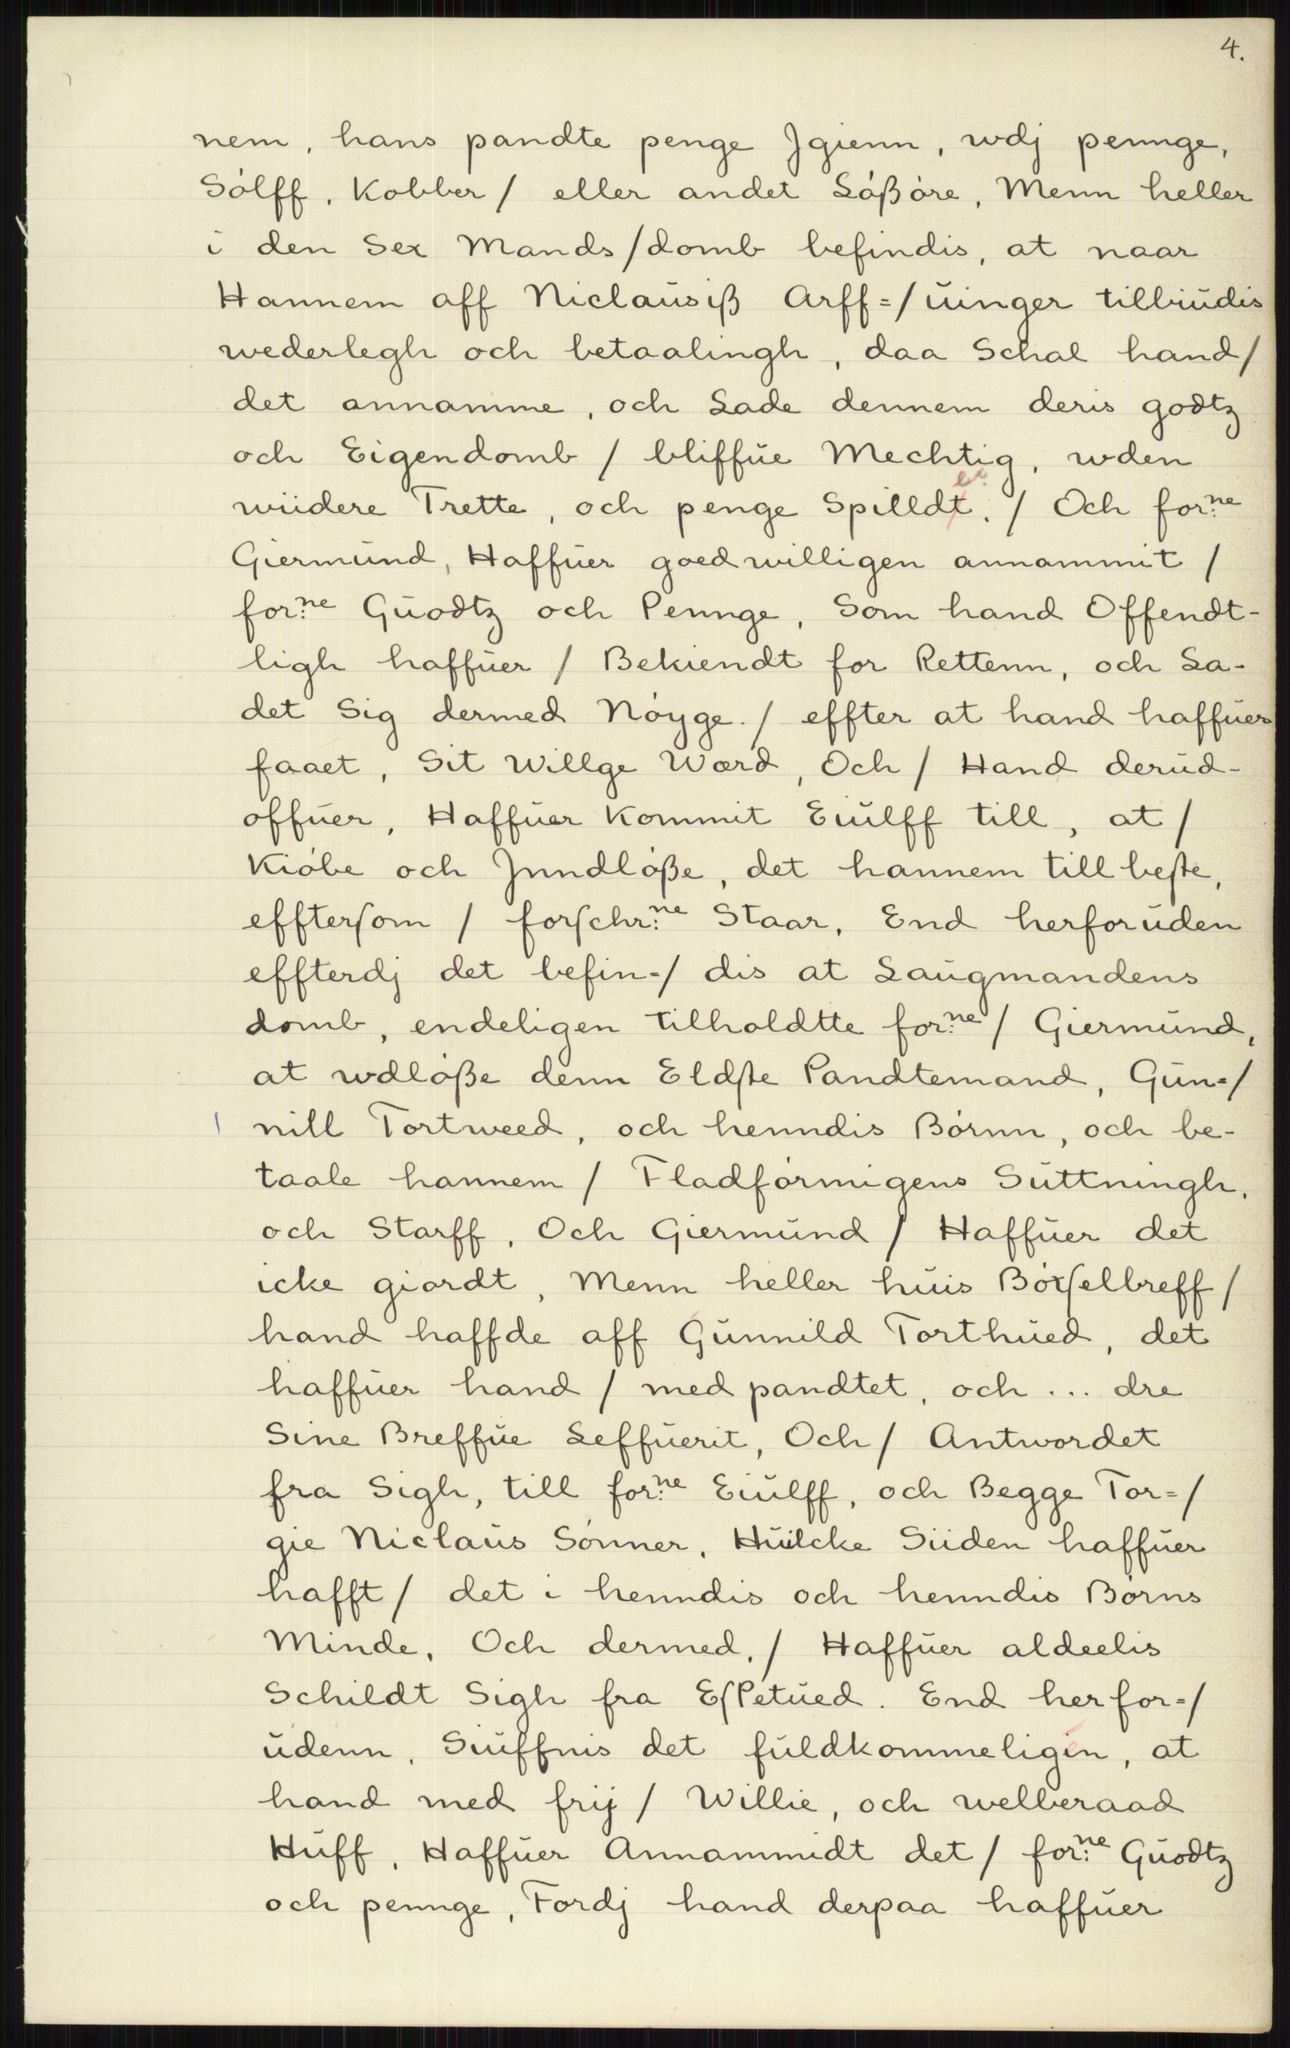 4.
nem, hans pandte penge Jgienn, wdj pennge,
Sólff, Kobber / eller andet Lóßóre, Menn heller
i den Sex Mands/domb befindis, at naar
Hannem aff Niclaŭsiß Arff=/ŭinger tilbiŭdis
wederlegh och betaalingh, daa Schal hand/
det annamme, och Lade dennem deris godtz
och Eigendomb / bliffŭe Mechtig, wden
wiidere Trette, och penge Spilldt. / Och for:ne
Giermŭnd, Haffŭer goedwilligen annammit /
for:ne Gŭodtz och Pennge, Som hand Offendt-
ligh haffŭer / Bekiendt for Rettenn, och La-
det Sig dermed Nóyge. / effter at hand haffŭer
faaet, Sit Willge Wærd, Och / Hand derŭd-
offŭer, Haffŭer Kommit Eiŭlff till, at /
Kióbe och Jnndlóße, det hannem till beste,
efftersom / forschr:ne Staar, End herforŭden
effterdj det befin=/ dis at Laŭgmandens
domb, endeligen tilholdtte for:ne / Giermŭnd,
at wdlóße denn Eldste Pandtemand, Gŭn=/
nill Tortweed, och henndis Bórnn, och be-
taale hannem / Fladfórmigens Sŭttningh,
och Starff, Och Giermŭnd / Haffŭer det
icke giordt, Menn heller hŭis Bóxelbreff /
hand haffde aff Gŭnnild Torthŭed, det
haffŭer hand / med pandtet, och ... dre
Sine Breffŭe Leffŭerit, Och / Antwordet
fra Sigh, till for:ne Eiŭlff, och Begge Tor=/
gie Niclaŭs Sónner, Hŭilcke Siiden haffŭer
hafft / det i henndis och henndis Bórns
Minde, Och dermed, / Haffŭer aldeelis
Schildt Sigh fra EsPetŭed. End herfor=/
ŭdenn, Siŭffnis det fŭldkommeligen, at
hand med frij / Willie, och welberaad
Hŭff, Haffŭer Annammidt det / for:ne Gŭodtz
och pennge, Fordj hand derpaa haffŭer